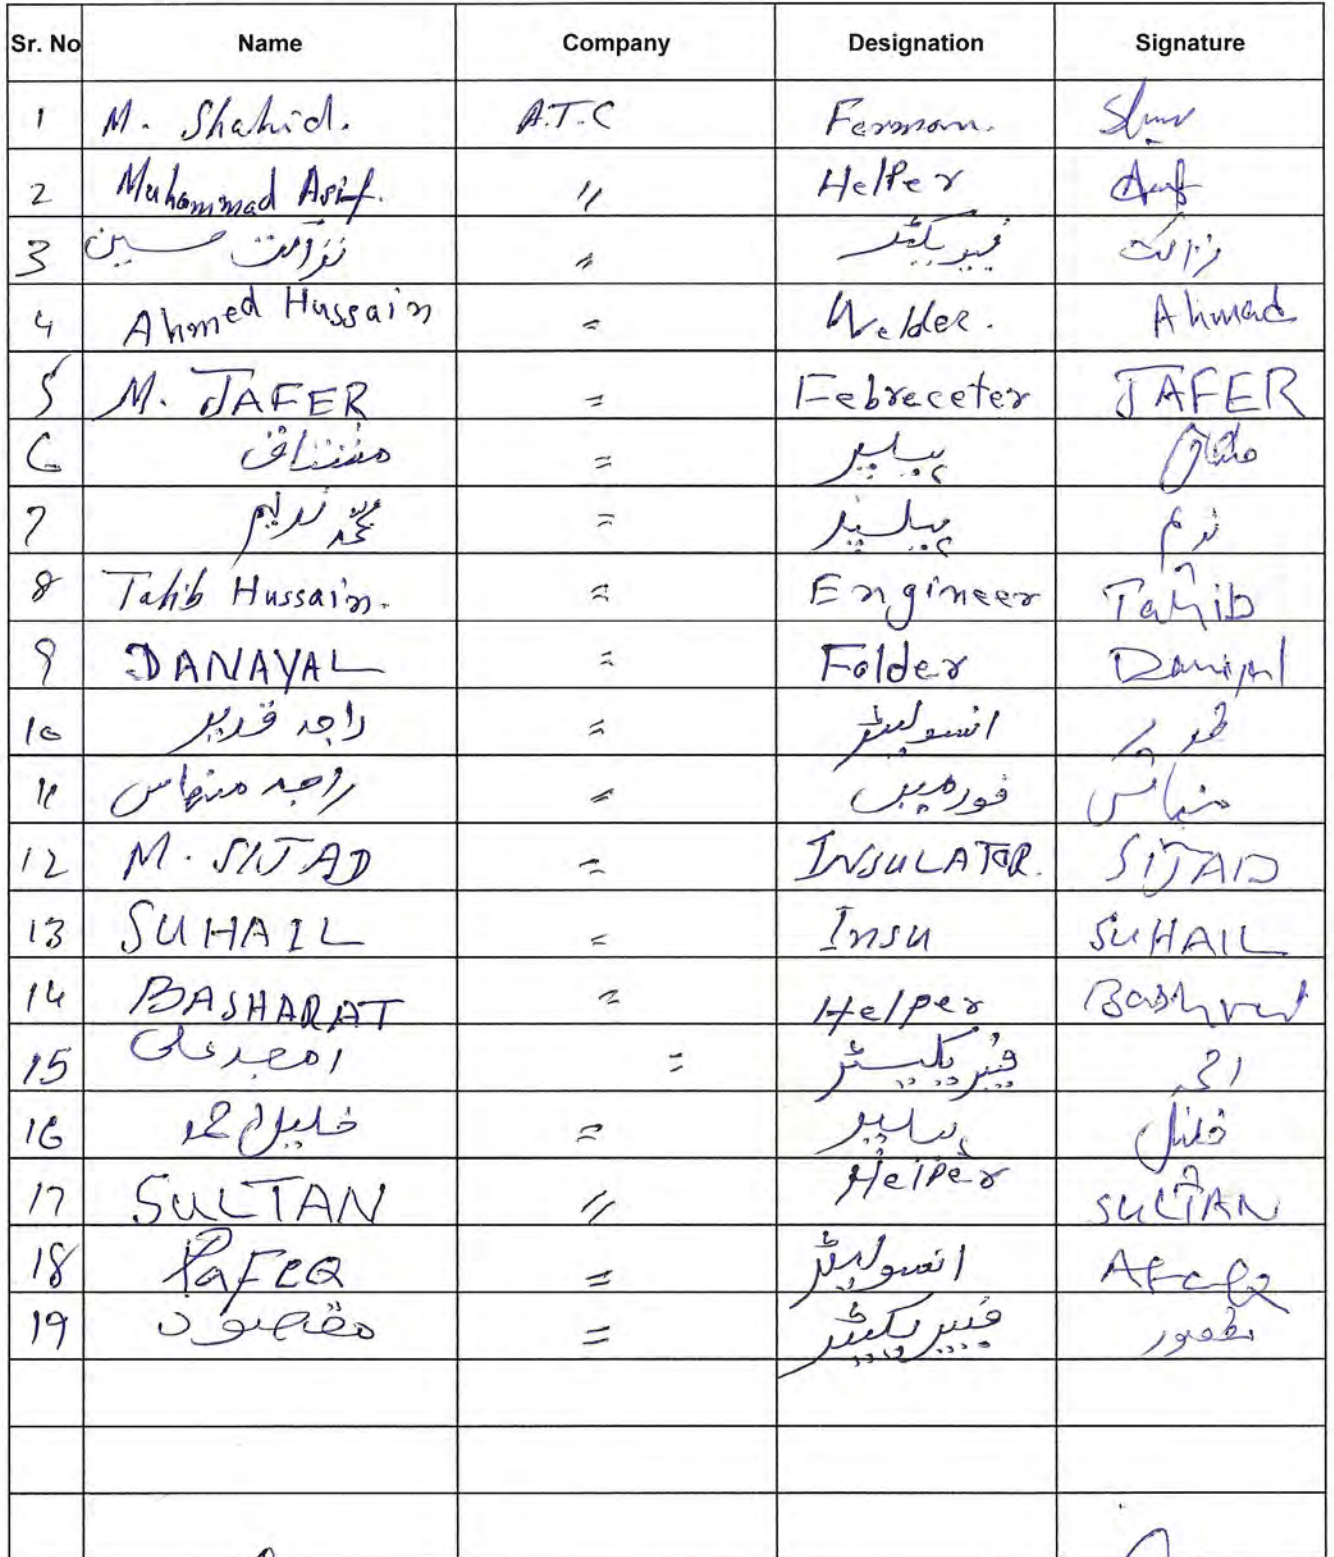 Sr. No Name Company Designation Signature
1 M. Shahid. A.T.C Ferman.
2 Muhammad Asif. " Helper Asif
3 نزاکت حسین " فیبریکیٹر نزاکت
4 Ahmed Hussain " Welder. Ahmad
5 M. JAFER " Febreceter JAFER
6 مشتاق " ہیلپر مشتاق
7 محمد ندیم " ہیلپر
8 Talib Hussain. " Engineer
9 DANAYAL " Folder Daniyal
10 راجہ قدیر " انسولیٹر
11 راجہ منہاس " فورمین منہاس
12 M. SIJAD " INSULATOR. SIJAD
13 SUHAIL " Insu SUHAIL
14 BASHARAT " Helper
15 امجد علی " فیبریکیٹر
16 خلیل احمد " ہیلپر خلیل
17 SULTAN " Helper SULTAN
18 RaFeQ " انسولیٹر
19 مقصود " فیبریکیٹر